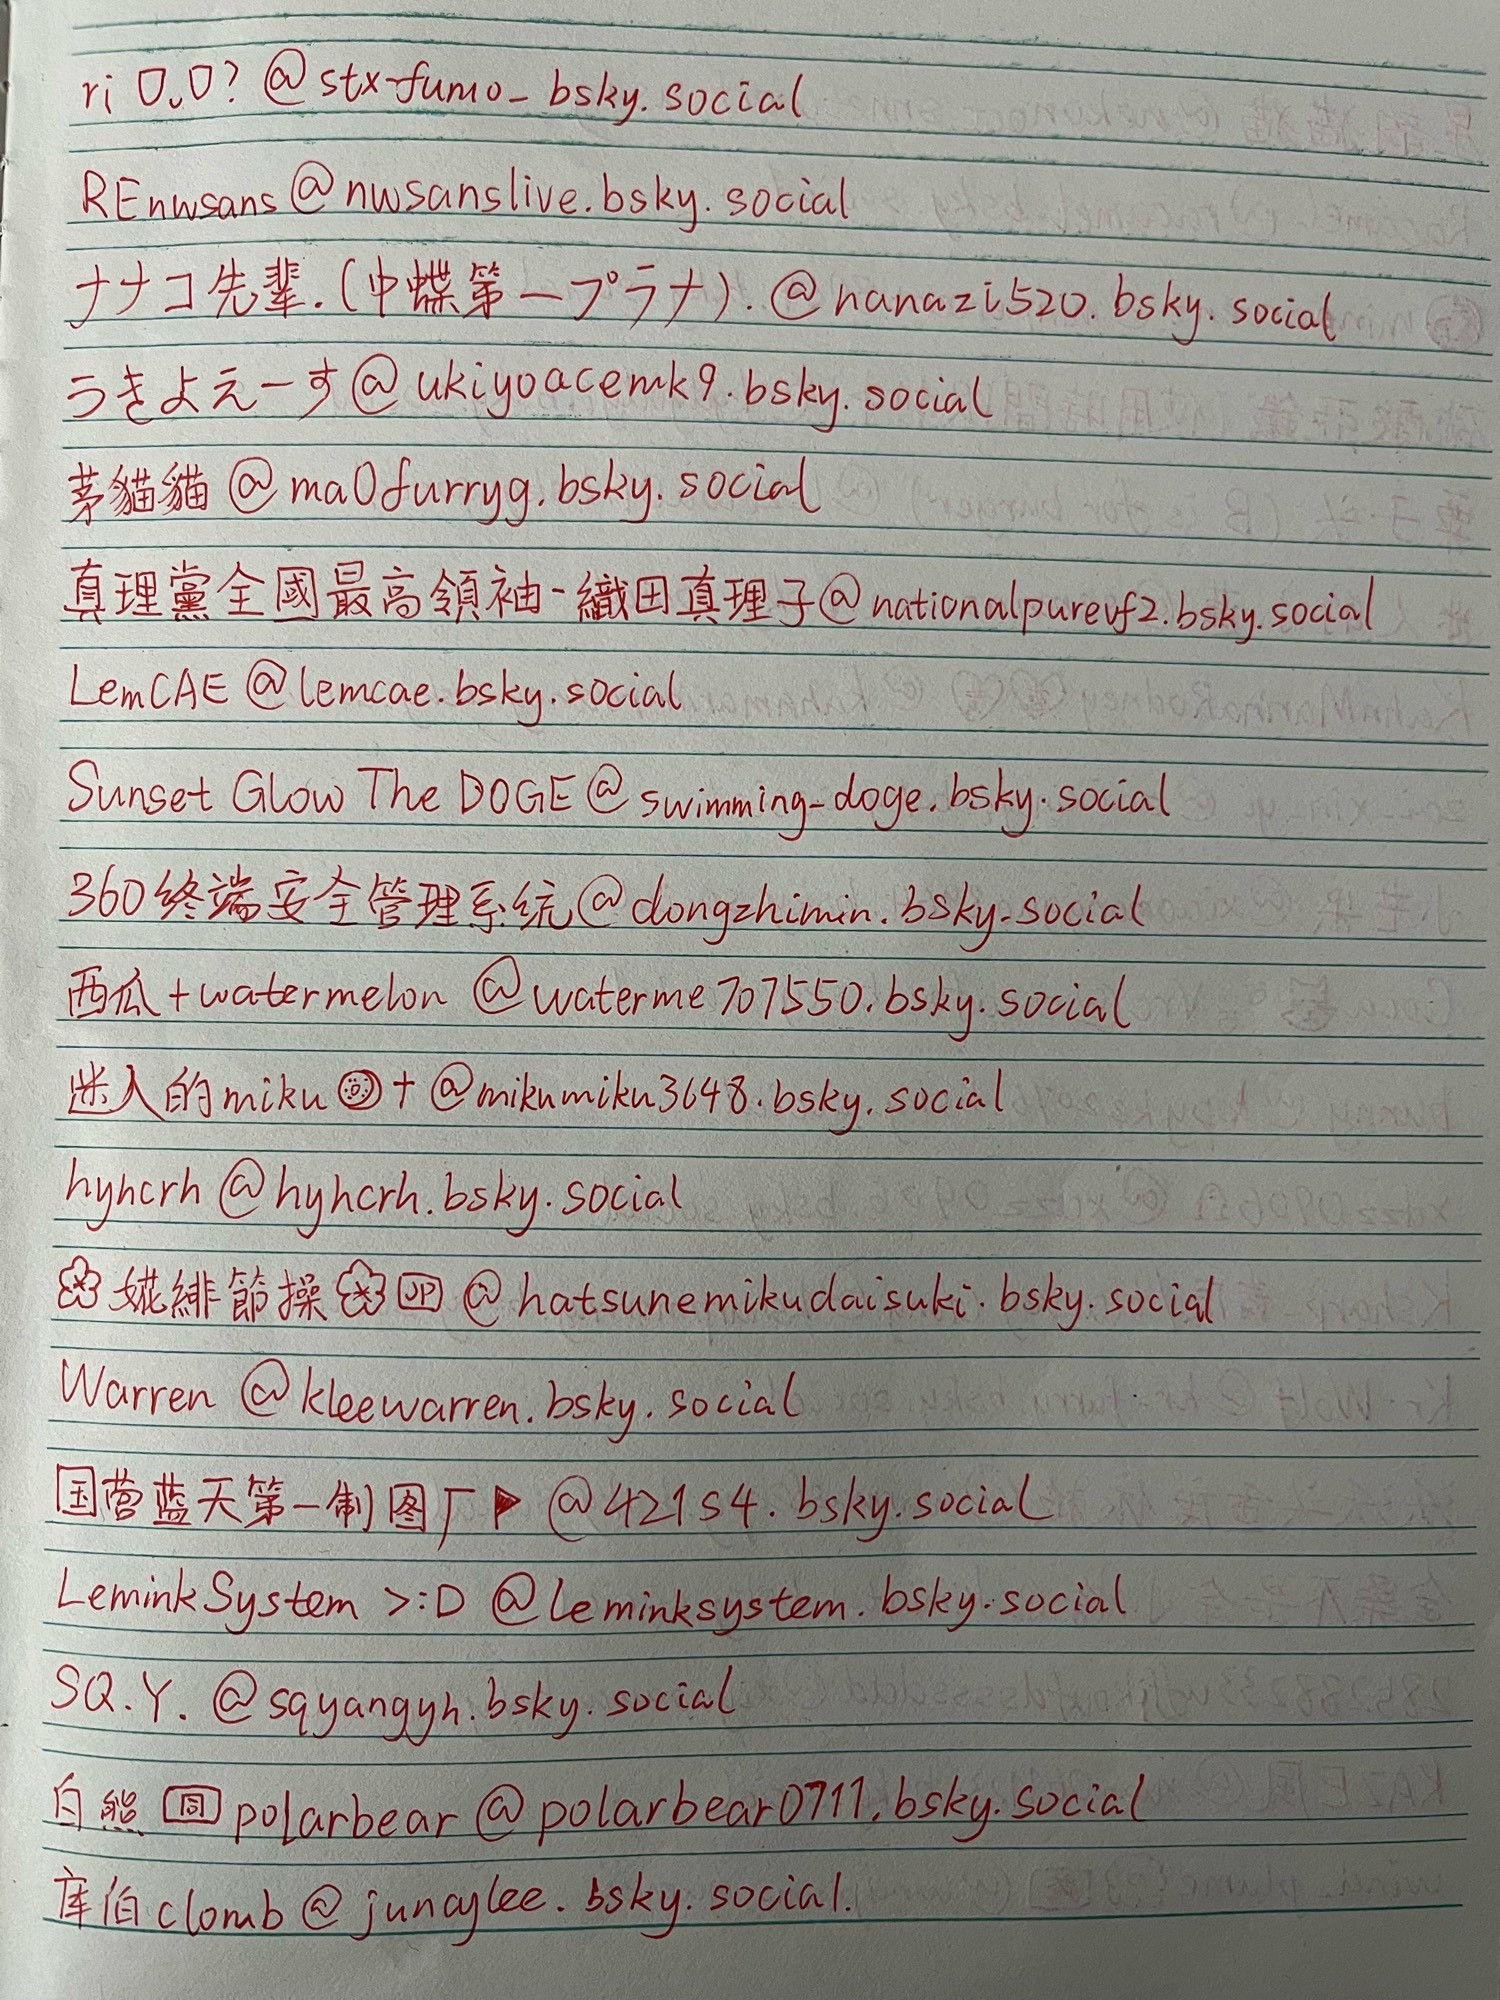 ri 0.0? @stx-fumo_bsky.social
REnwsans@nwsanslive.bsky.social
ナナコ先輩.(中蝶第一プラナ).@nanazi520.bsky.social
うきよえーす@ukiyoacemk9.bsky.social
茅貓貓@ma0furryg.bsky.social
真理黨全國最高領袖-織田真理子@nationalpurevf2.bsky.social
LemCAE@lemcae.bsky.social
Sunset Glow The DOGE@swimming_doge.bsky.social
360终端安全管理系统@dongzhimin.bsky.social
西瓜+watermelon @waterme707550.bsky.social
迷人的miku + @mikumiku3648.bsky.social
hyhcrh@hyhcrh.bsky.social
緋節操 JP @hatsunemikudaisuki.bsky.social
Warren @kleewarren.bsky.social
国营蓝天第一制图厂 @421s4.bsky.social
LeminkSystem >:D @leminksystem.bsky.social
SQ.Y. @sqyangyh.bsky.social
白熊 polarbear @polarbear0711.bsky.social
库伯clomb @juncylee.bsky.social.